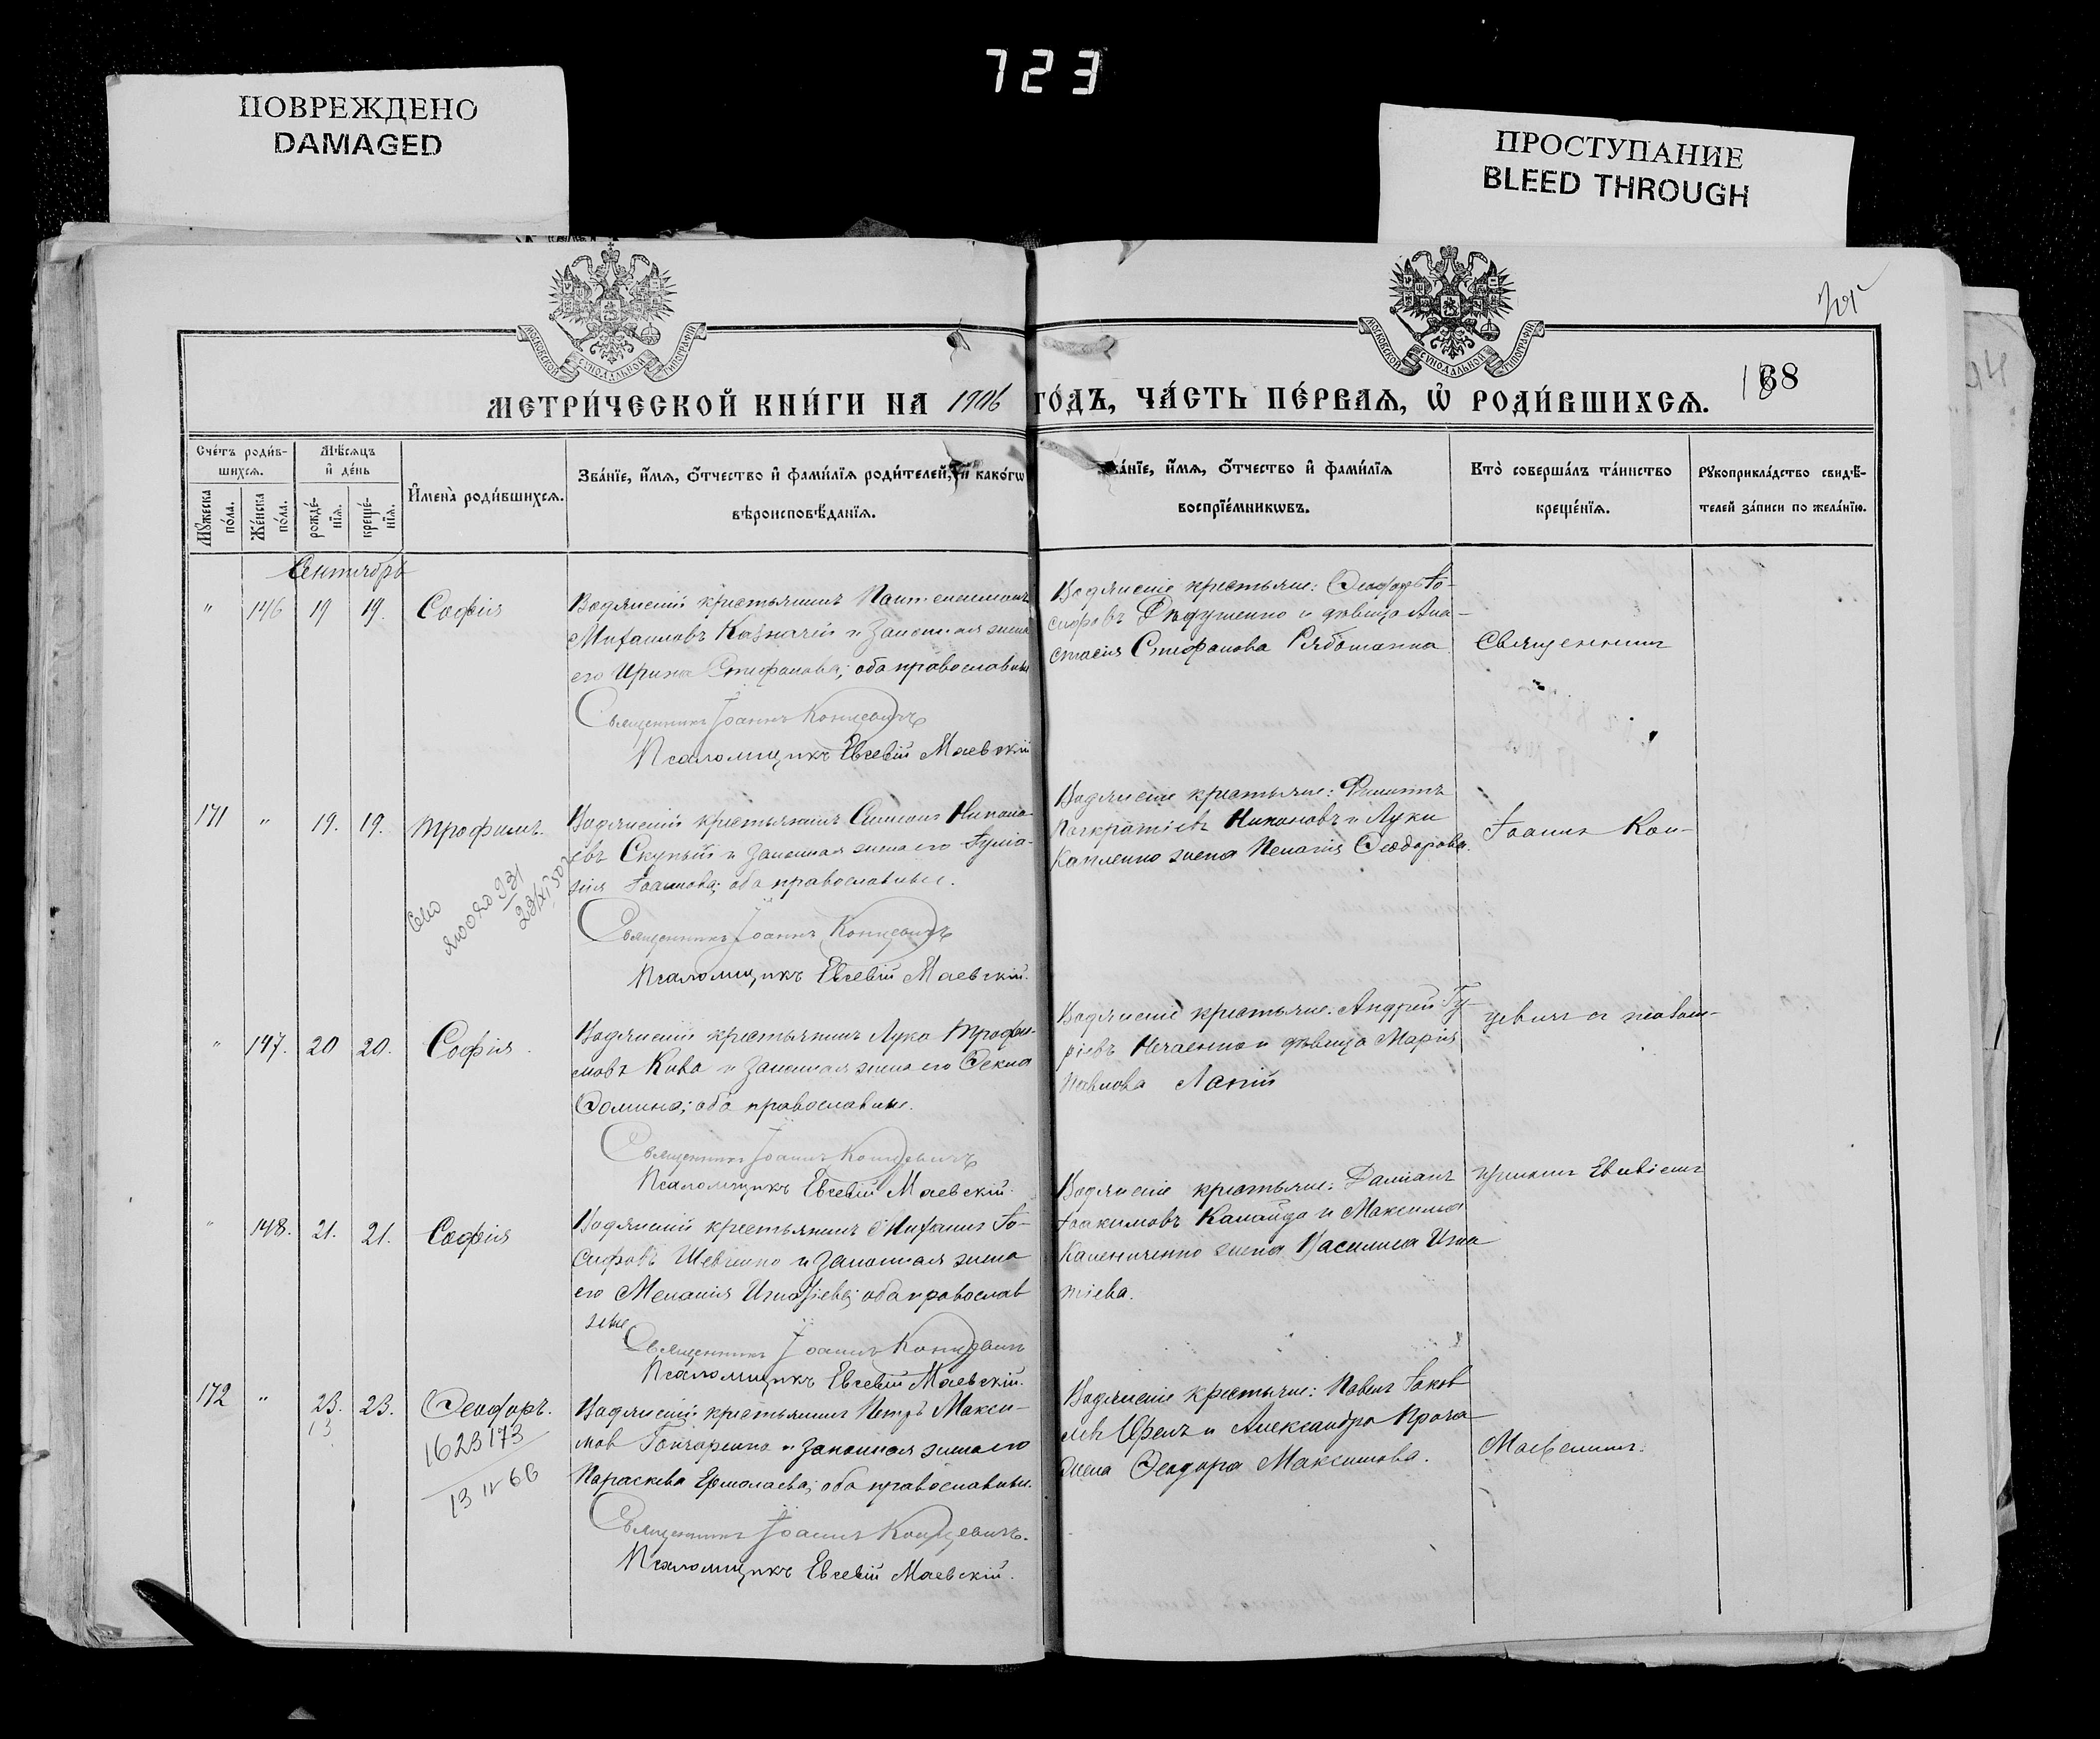 723
ПОВРЕЖДЕНО
DAMAGED
ПРОСТУПАНИЕ
BLEED THROUGH
МОСКОВСКОЙ СѴНОДАЛЬНОЙ ТИПОГРАФІИ
МОСКОВСКОЙ СѴНОДАЛЬНОЙ ТИПОГРАФІИ
168
МЕТРИ́ЧЕСКОЙ КНИ́ГИ НА 1906 ГО́ДЪ, ЧА́СТЬ ПЕ́РВАѦ, Ѡ҆ РОДИ́ВШИХСѦ.
Сче́тъ роди́в-
шихсѧ.
Мꙋ́жеска
по́ла.
Же́нска
по́ла.
Мѣ́сѧцъ
и҆ де́нь
рожде́-
нїѧ.
креще́-
нїѧ.
И҆мена̀ роди́вшихсѧ.
Зва́нїе, и҆́мѧ, ѻ҆́тчество и҆ фами́лїѧ роди́телей, и҆ како́гѡ
вѣроисповѣ́данїѧ.
ва́нїе, и҆́мѧ, ѻ҆́тчество и҆ фами́лїѧ
воспрїе́мникѡвъ.
Кто̀ соверша́лъ та́инство
креще́нїѧ.
Рꙋкоприкла́дство свидѣ́-
телей за́писи по жела́нїю.
Сентябрь
" 146 19 19. Софія
Водянскій крестьянинъ Пантелеимонъ
Михаиловъ Казначей и законная жена
его Ирина Стефанова; оба православные
Священникъ Іоаннъ Концевичъ
Псаломщикъ Евсевій Маевскій
Водянскіе крестьяне: Ѳеодоръ Іо-
сифовъ Дѣдушенко и дѣвица Ана-
стасія Стефанова Рябошапка
Священникъ
171 " 19. 19. Трофимъ.
Водянскій крестьянинъ Симеонъ Никола-
евъ Скупый и законная жена его Іулiа-
нія Іоаннова; оба православные.
Священникъ Іоаннъ Концевичъ
Псаломщикъ Евсевій Маевскій.
Водянскіе крестьяне: Филиппъ
Панкратіевъ Никоновъ и Луки
Капленко жена Пелагія Ѳеодорова.
Іоаннъ Кон-
" 147. 20 20. Софія.
Водянскій крестьянинъ Лука Трофи-
мовъ Кива и законная жена его Ѳекла
Ѳомина; оба православные.
Священникъ Іоаннъ Концевичъ
Псаломщикъ Евсевій Маевскій.
Водянскіе крестьяне: Андрей Гу-
ріевъ Нечаенко и дѣвица Марія
Павлова Лапій
цевичъ съ псалом-
" 148. 21. 21. Софія
Водянскій крестьянинъ Михаилъ Іо-
сифовъ Шевченко и законная жена
его Меланія Игнатіева; оба православ
ные
Священникъ Іоаннъ Концевичъ
Псаломщикъ Евсевій Маевскій.
Водянскіе крестьяне: Даміанъ
Іоакимовъ Калайда и Максима
Калениченко жена Василиса Игна
тіева.
щикомъ Евсевіемъ
172 " 23. 23. Ѳеодоръ.
13
1623173
13 II 66
Водянскій крестьянинъ Петръ Макси-
мов Гончаренко и законная жена его
Параскева Ермолаева; оба православные.
Священникъ Іоаннъ Концевичъ.
Псаломщикъ Евсевій Маевскій.
Водянскіе крестьяне: Павелъ Іаков
левъ и Александра
жена Ѳеодора Максимова.
Маевскимъ.